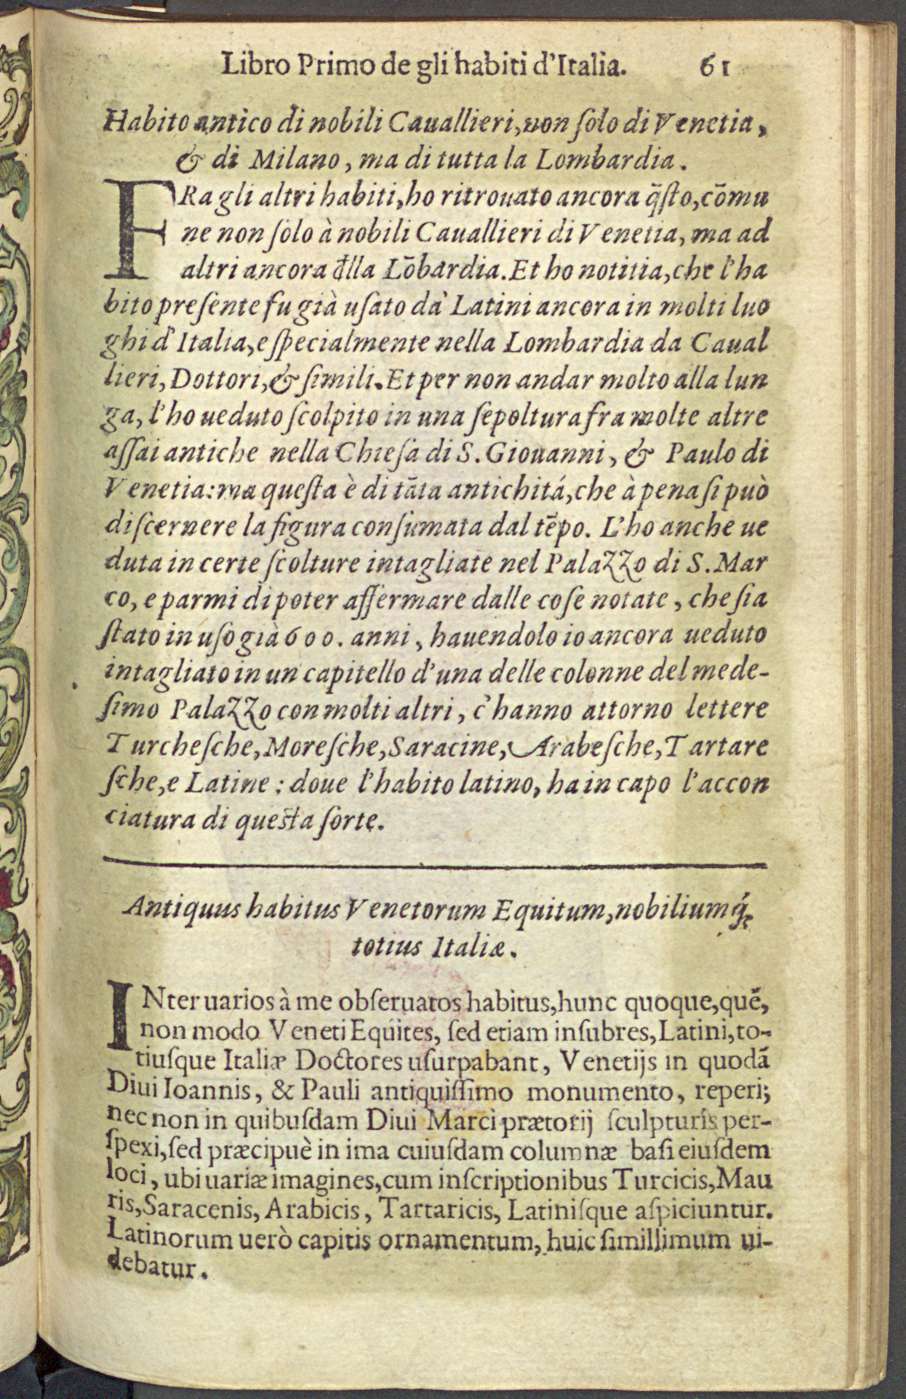 Libro Primo de gli habiti d'Italia. 61
Habito antico di nobili Cauallieri, non ſolo di Venetia,
& di Milano, ma di tutta la Lombardia.
FRa gli altri habiti, ho ritrouato ancora q̃ſto, cõmu
ne non ſolo à nobili Cauallieri di Venetia, ma ad
altri ancora d̃lla Lõbardia. Et ho notitia, che l'ha
bito preſente fu già uſato da' Latini ancora in molti luo
ghi d'Italia, e ſpecialmente nella Lombardia da Caual
lieri, Dottori, & ſimili. Et per non andar molto alla lun
ga, l'ho ueduto ſcolpito in una ſepoltura fra molte altre
aſſai antiche nella Chieſa di S. Giouanni, & Paulo di
Venetia: ma queſta è di tãta antichitá, che à pena ſi può
diſcernere la figura conſumata dal tẽpo. L'ho anche ue
duta in certe ſcolture intagliate nel Palazzo di S. Mar
co, e parmi di poter affermare dalle coſe notate, che ſia
ſtato in uſo già 600. anni, hauendolo io ancora ueduto
intagliato in un capitello d'una delle colonne del mede-
ſimo Palazzo con molti altri, c'hanno attorno lettere
Turcheſche, Moreſche, Saracine, Arabeſche, Tartare
ſche, e Latine: doue l'habito latino, ha in capo l'accon
ciatura di queſta ſorte.
Antiquus habitus Venetorum Equitum, nobiliumq́;
totius Italiæ.
INter uarios à me obſeruatos habitus, hunc quoque, quẽ,
non modo Veneti Equites, ſed etiam inſubres, Latini, to-
tiuſque Italiæ Doctores uſurpabant, Venetijs in quodã
Diui Ioannis, & Pauli antiquiſſimo monumento, reperi;
nec non in quibuſdam Diui Marci prætorij ſculpturis per-
ſpexi, ſed præcipuè in ima cuiuſdam columnæ baſi eiuſdem
loci, ubi uariæ imagines, cum inſcriptionibus Turcicis, Mau
ris, Saracenis, Arabicis, Tartaricis, Latiniſque aſpiciuntur.
Latinorum uerò capitis ornamentum, huic ſimillimum ui-
debatur.